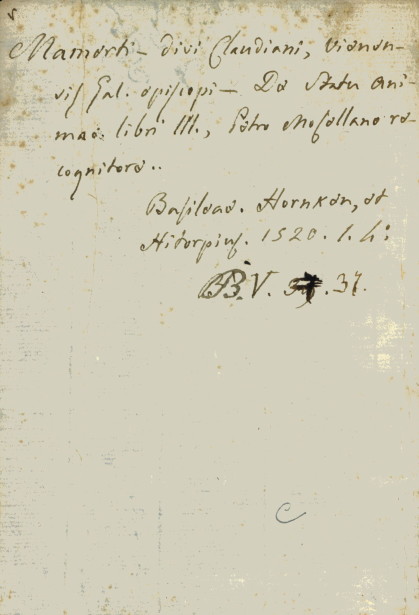 Mamerti – divi Claudiani, vienen-
sis Gal. episcopi – De Statu Ani-
mae. libri III., Petro Mosellano re-
cognitore..
Basileae. Hornken, et
Hitorpius. 1520. l. h:
BB. V. 37.
C